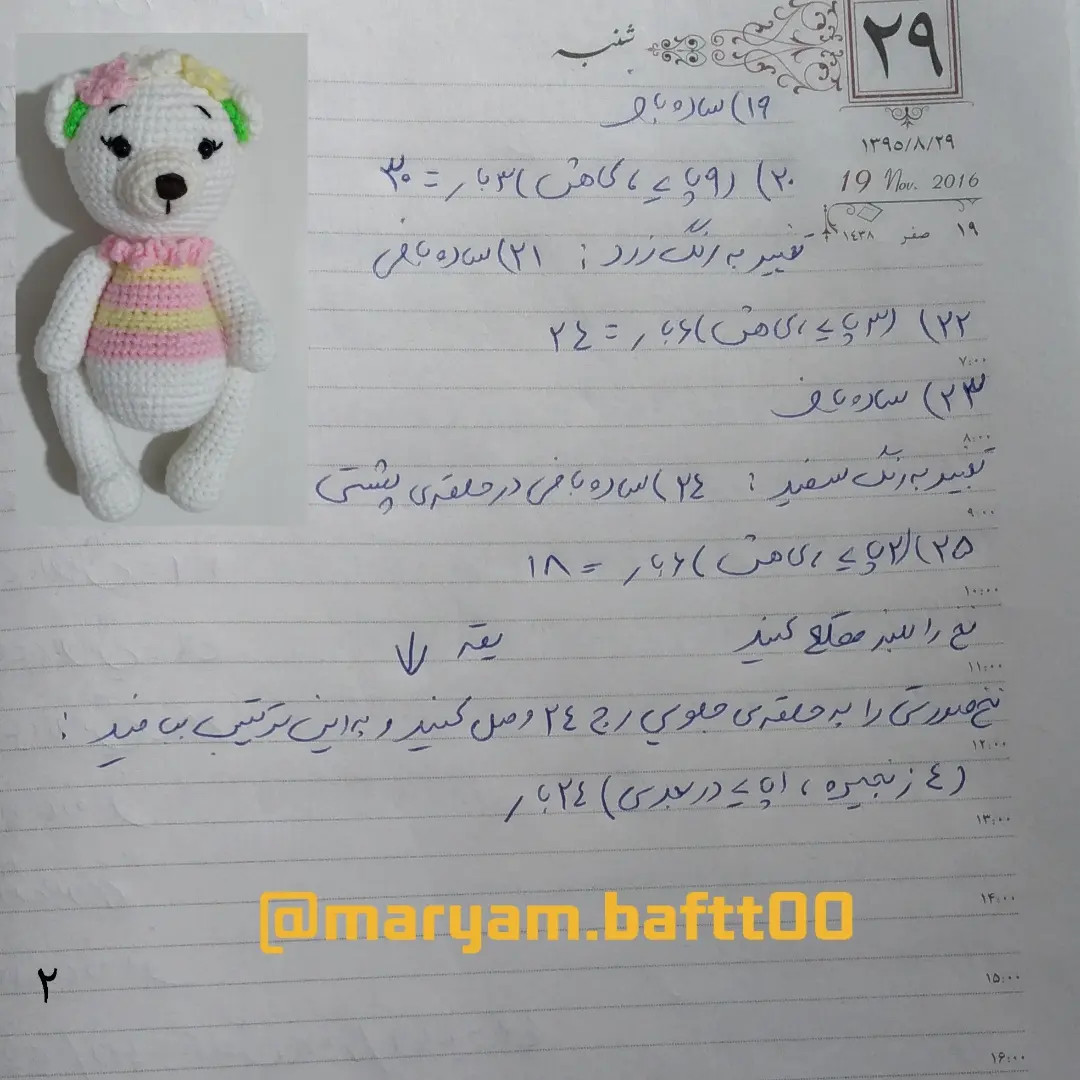 شنبه
۲۹
۱۳۹۵/۸/۲۹
19 Nov. 2016
۱۹ صفر ۱٤۳۸
۱۹) ساده بافی
۲۰) (۹ پایه ، کاهش) ۳ بار = ۳۰
تغییر به رنگ زرد : ۲۱) ساده بافی
۲۲) (۳ پایه ، کاهش) ۶ بار = ۲٤
۷:۰۰
۲۳) ساده بافی
۸:۰۰
تغییر به رنگ سفید : ۲٤) ساده بافی در حلقه‌ی پشتی
۹:۰۰
۲۵) (۲ پایه ، کاهش) ۶ بار = ۱۸
۱۰:۰۰
نخ را بلند قطع کنید یقه ↓
۱۱:۰۰
نخ صورتی را به حلقه‌ی جلویی رج ۲٤ وصل کنید و به این ترتیب ببافید :
۱۲:۰۰
(٤ زنجیره ، ۱ پایه در بعدی) ۲٤ بار
۱۳:۰۰
۱۴:۰۰
@maryam.baftt00
۱۵:۰۰
۲
۱۶:۰۰